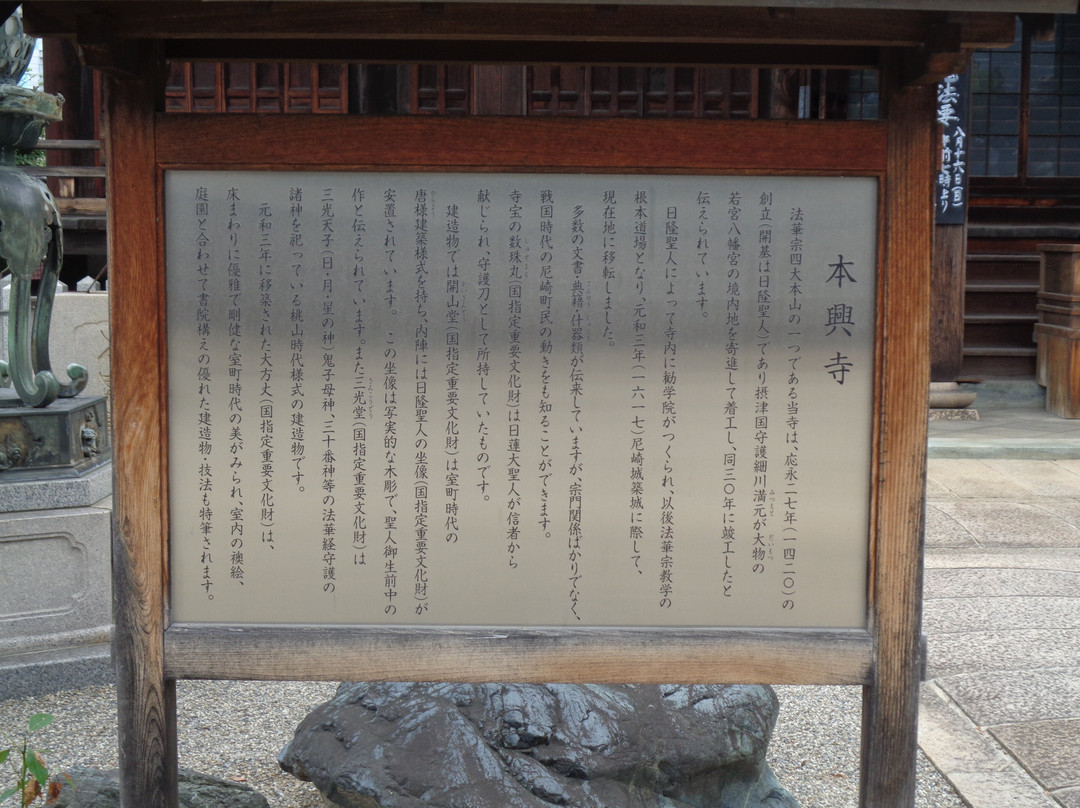 本興寺
法華宗四大本山の一つである当寺は、応永二七年(一四二〇)の
創立(開基は日隆聖人)であり摂津国守護細川満元が大物の
若宮八幡宮の境内地を寄進して着工し、同三〇年に竣工したと
伝えられています。
日隆聖人によって寺内に勧学院がつくられ、以後法華宗教学の
根本道場となり、元和三年(一六一七)尼崎城築城に際して、
現在地に移転しました。
多数の文書・典籍・什器類が伝来していますが、宗門関係ばかりでなく、
戦国時代の尼崎町民の動きをも知ることができます。
寺宝の数珠丸(国指定重要文化財)は日蓮大聖人が信者から
献じられ、守護刀として所持していたものです。
建造物では開山堂(国指定重要文化財)は室町時代の
唐様建築様式を持ち、内陣には日隆聖人の坐像(国指定重要文化財)が
安置されています。この坐像は写実的な木彫で、聖人御生前中の
作と伝えられています。また三光堂(国指定重要文化財)は
三光天子(日・月・星の神)鬼子母神、三十番神等の法華経守護の
諸神を祀っている桃山時代様式の建造物です。
元和三年に移築された大方丈(国指定重要文化財)は、
床まわりに優雅で剛健な室町時代の美がみられ、室内の襖絵、
庭園と合わせて書院構えの優れた建造物・技法も特筆されます。
法要
八月十六日(日)
午前七時より